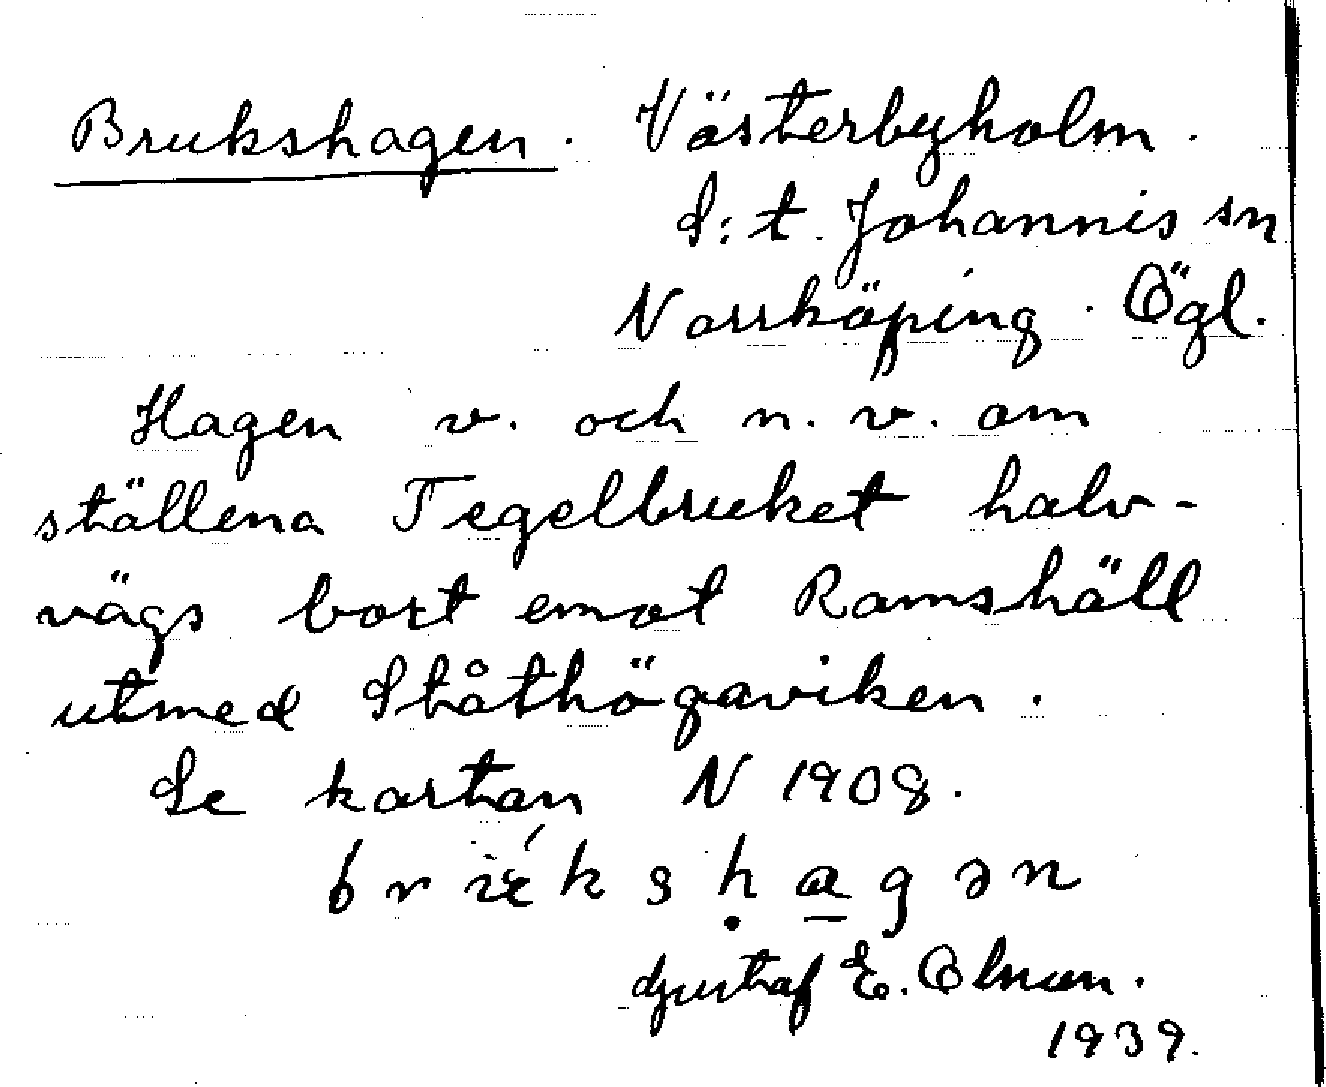 Brukshagen. Västerbyholm.
S:t. Johannis sn
Norrköping. Ögl.
Hagen v. och n.v. om
ställena Tegelbruket halv-
vägs bort emot Ramshäll
utmed Ståthögaviken.
Se kartan N 1908.
Gustaf E. Olman.
1939.